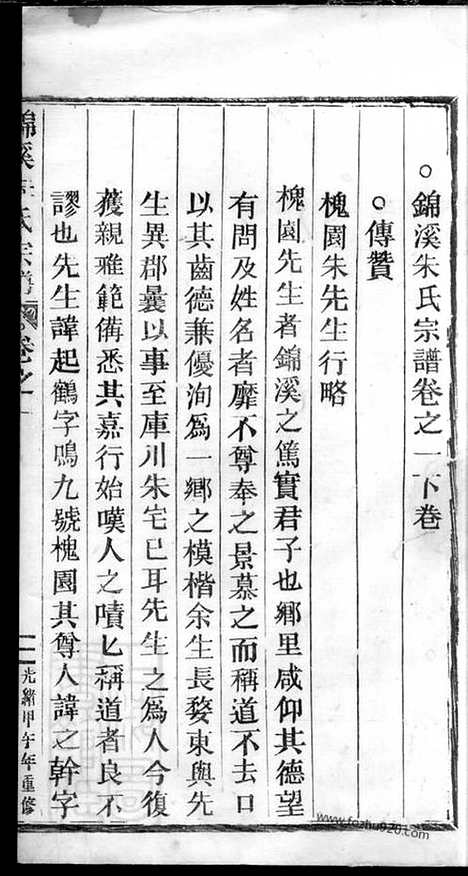 錦溪朱氏宗譜卷之一下卷
傳贊
槐園朱先生行略
槐園先生者錦溪之篤實君子也鄉里咸仰其德望
有問及姓名者靡不尊奉之景慕之而稱道不去口
以其齒德兼優洵為一鄉之模楷余生長婺東與先
生異郡曩以事至庫川朱宅已耳先生之為人今復
獲親雅範備悉其嘉行始嘆人之嘖匕稱道者良不
謬也先生諱起鶴字鳴九號槐園其尊人諱之幹字
錦溪朱氏宗譜 卷之一
光緒甲午年重修
www.fozhu920.com